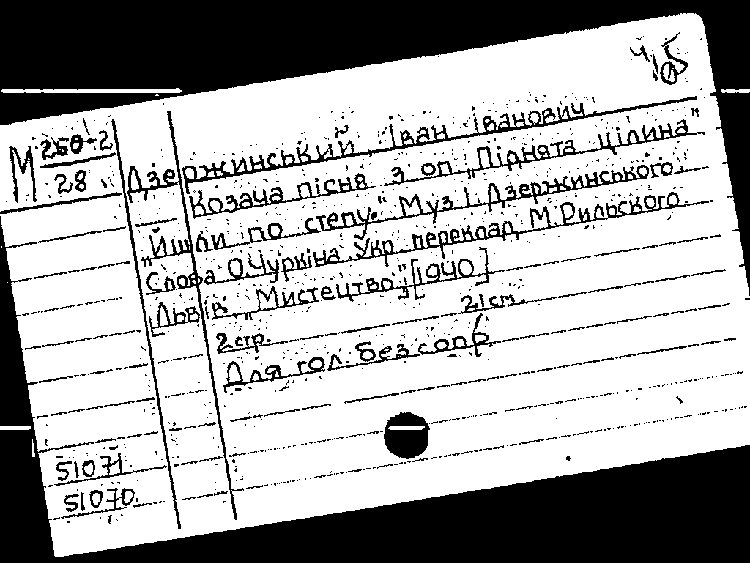 4/105
М 250-2
28
Дзержинський, Іван Іванович.
Козача пісня з оп. „Піднята цілина"
„Йшли по степу." Муз І. Дзержинського.
Слова О.Чуркіна Укр. переклад М.Рильского.
[Львів „Мистецтво", [1940]
2 стр. 21 ст.
Для гол. без сопр.
51071
51070.